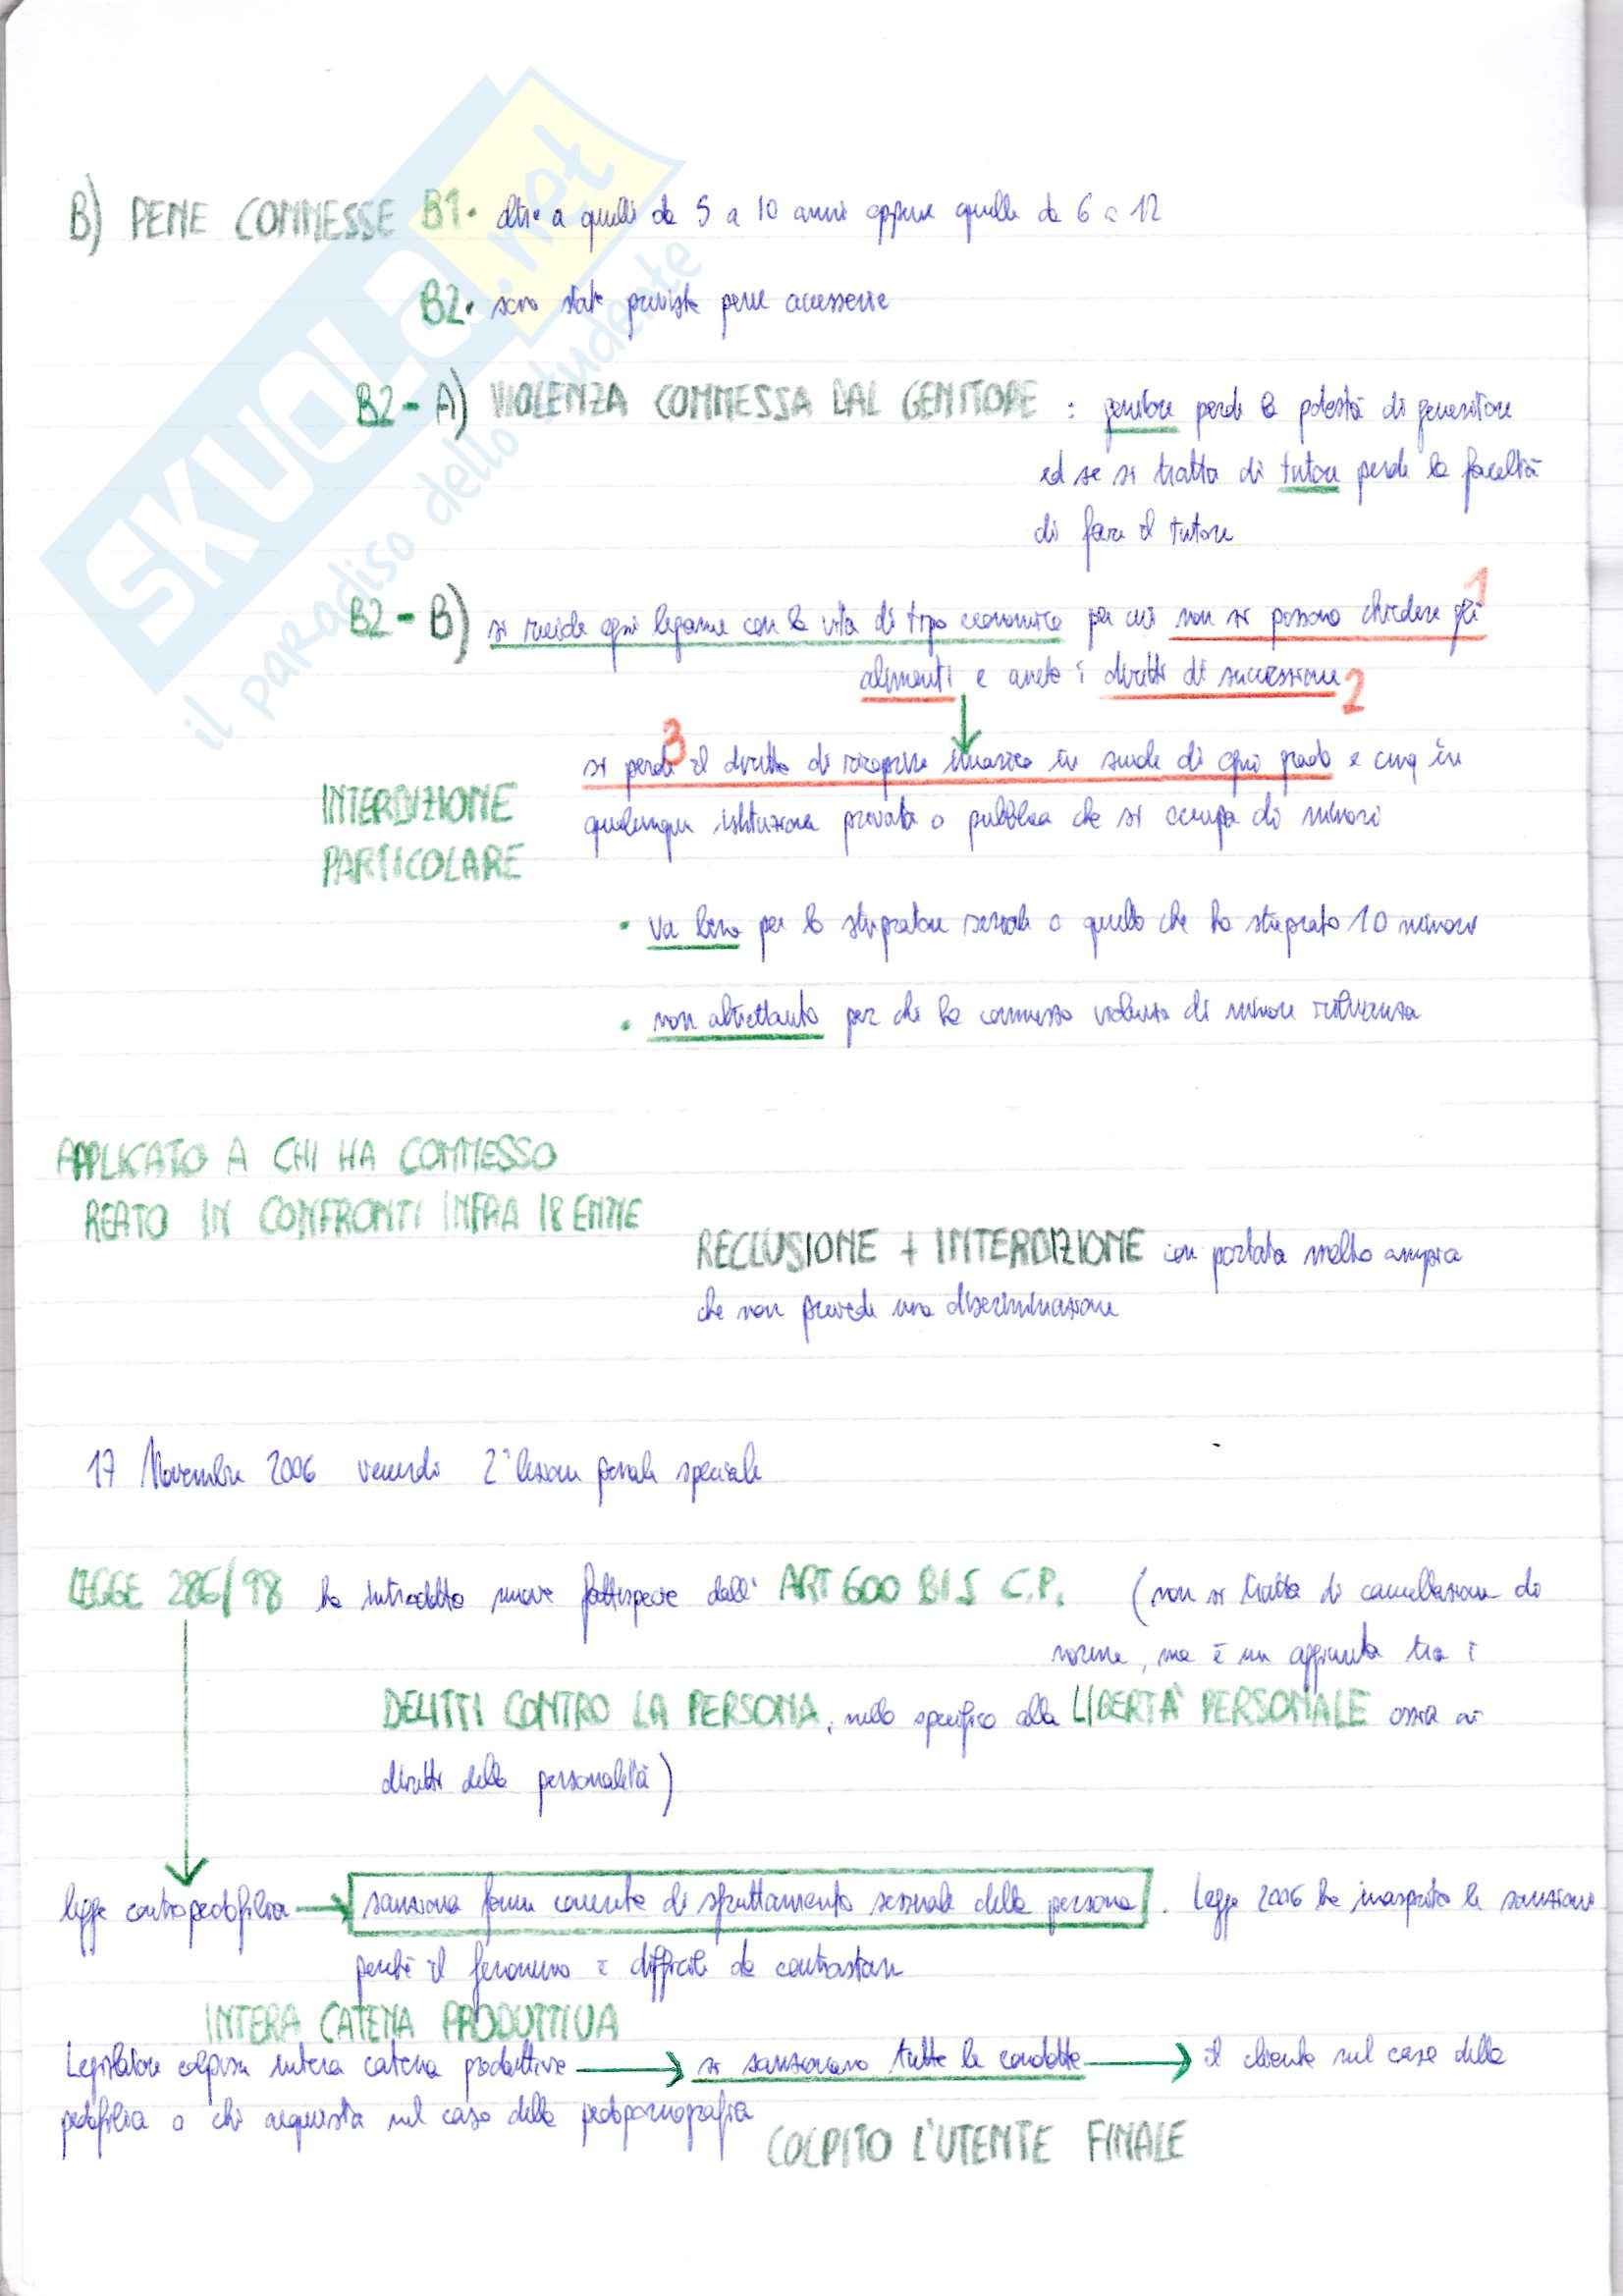 SKUOLA.net
il paradiso dello studente
B) PENE COMMESSE B1• oltre a quelli da 5 a 10 anni oppure quelle da 6 a 12
B2• sono state previste pene accessorie
B2-A) VIOLENZA COMMESSA DAL GENITORE : genitore perde la potestà di genitore
ed se si tratta di tutore perde la facoltà
di fare il tutore
B2-B) si recide ogni legame con la vita di tipo economico per cui non si possono chiedere gli 1
alimenti e anche i diritti di successione 2
3
si perde il diritto di ricoprire incarico in scuole di ogni grado e cmq in
INTERDIZIONE
qualunque istituzione privata o pubblica che si occupa di minori
PARTICOLARE
• va bene per lo stupratore seriale o quello che ha stuprato 10 minori
• non altrettanto per chi ha commesso violenza di minore rilevanza
APPLICATO A CHI HA COMMESSO
REATO IN CONFRONTI INFRA 18ENNE
RECLUSIONE + INTERDIZIONE con portata molto ampia
che non prevede una discriminazione
17 Novembre 2006 venerdi 2° lezione penale speciale
LEGGE 286/98 ha introdotto nuove fattispecie dall' ART 600 BIS C.P. (non si tratta di cancellazione di
norme, ma è un aggiunta tra i
DELITTI CONTRO LA PERSONA, nello specifico alla LIBERTA' PERSONALE ossia ai
diritti della personalità)
legge contro pedofilia → sanziona forme concrete di sfruttamento sessuale della persona. Legge 2006 ha inasprito le sanzioni
perché il fenomeno è difficile da contrastare
INTERA CATENA PRODUTTIVA
Legislatore colpisce intera catena produttiva → si sanzionano tutte le condotte → il cliente nel caso della
pedofilia o chi acquista nel caso della pedopornografia
COLPITO L'UTENTE FINALE